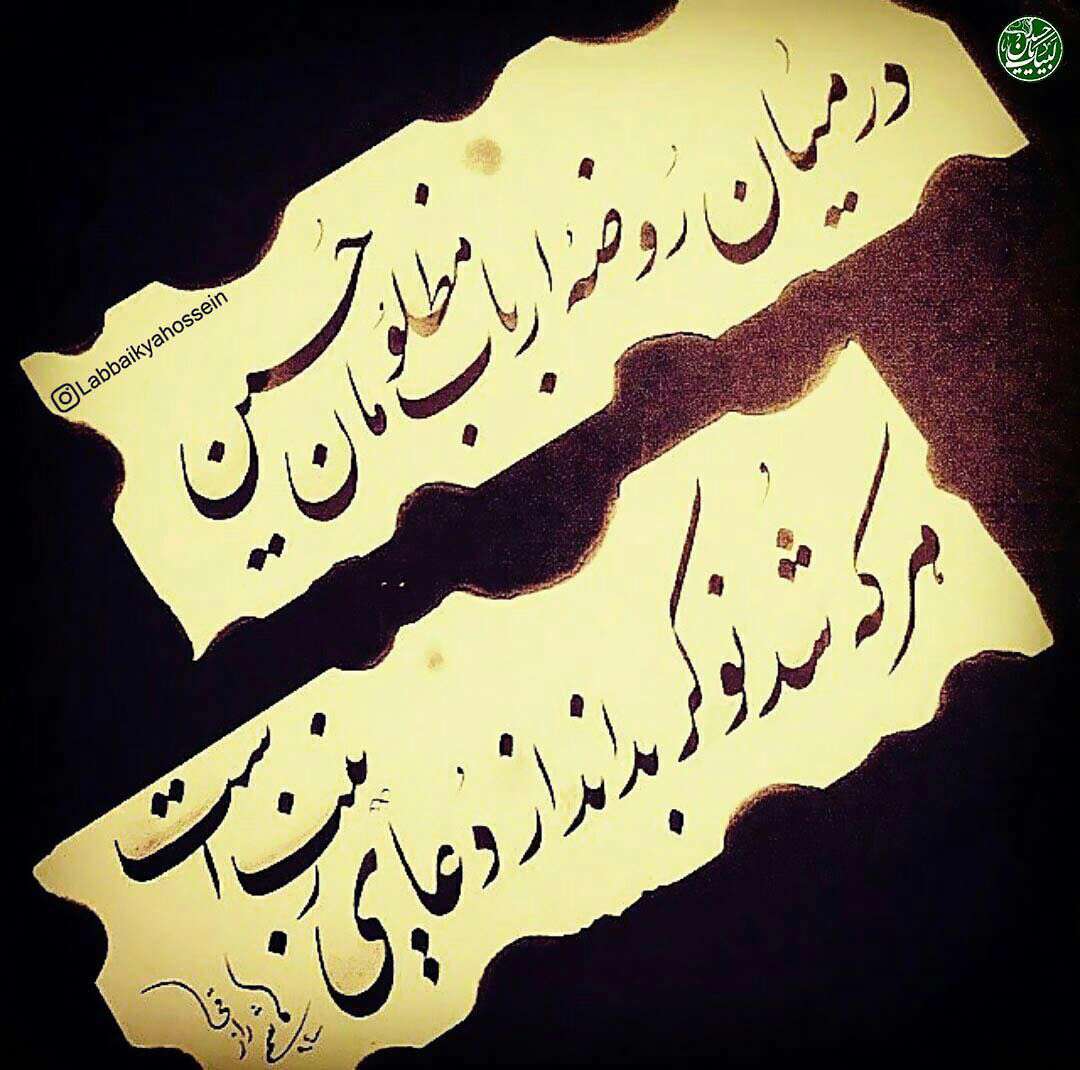 لبیک یا حسین
در میان روضه ارباب مظلومان حسین
Labbaikyahossein
هر که شد نوکر بداند از دعای زینب است